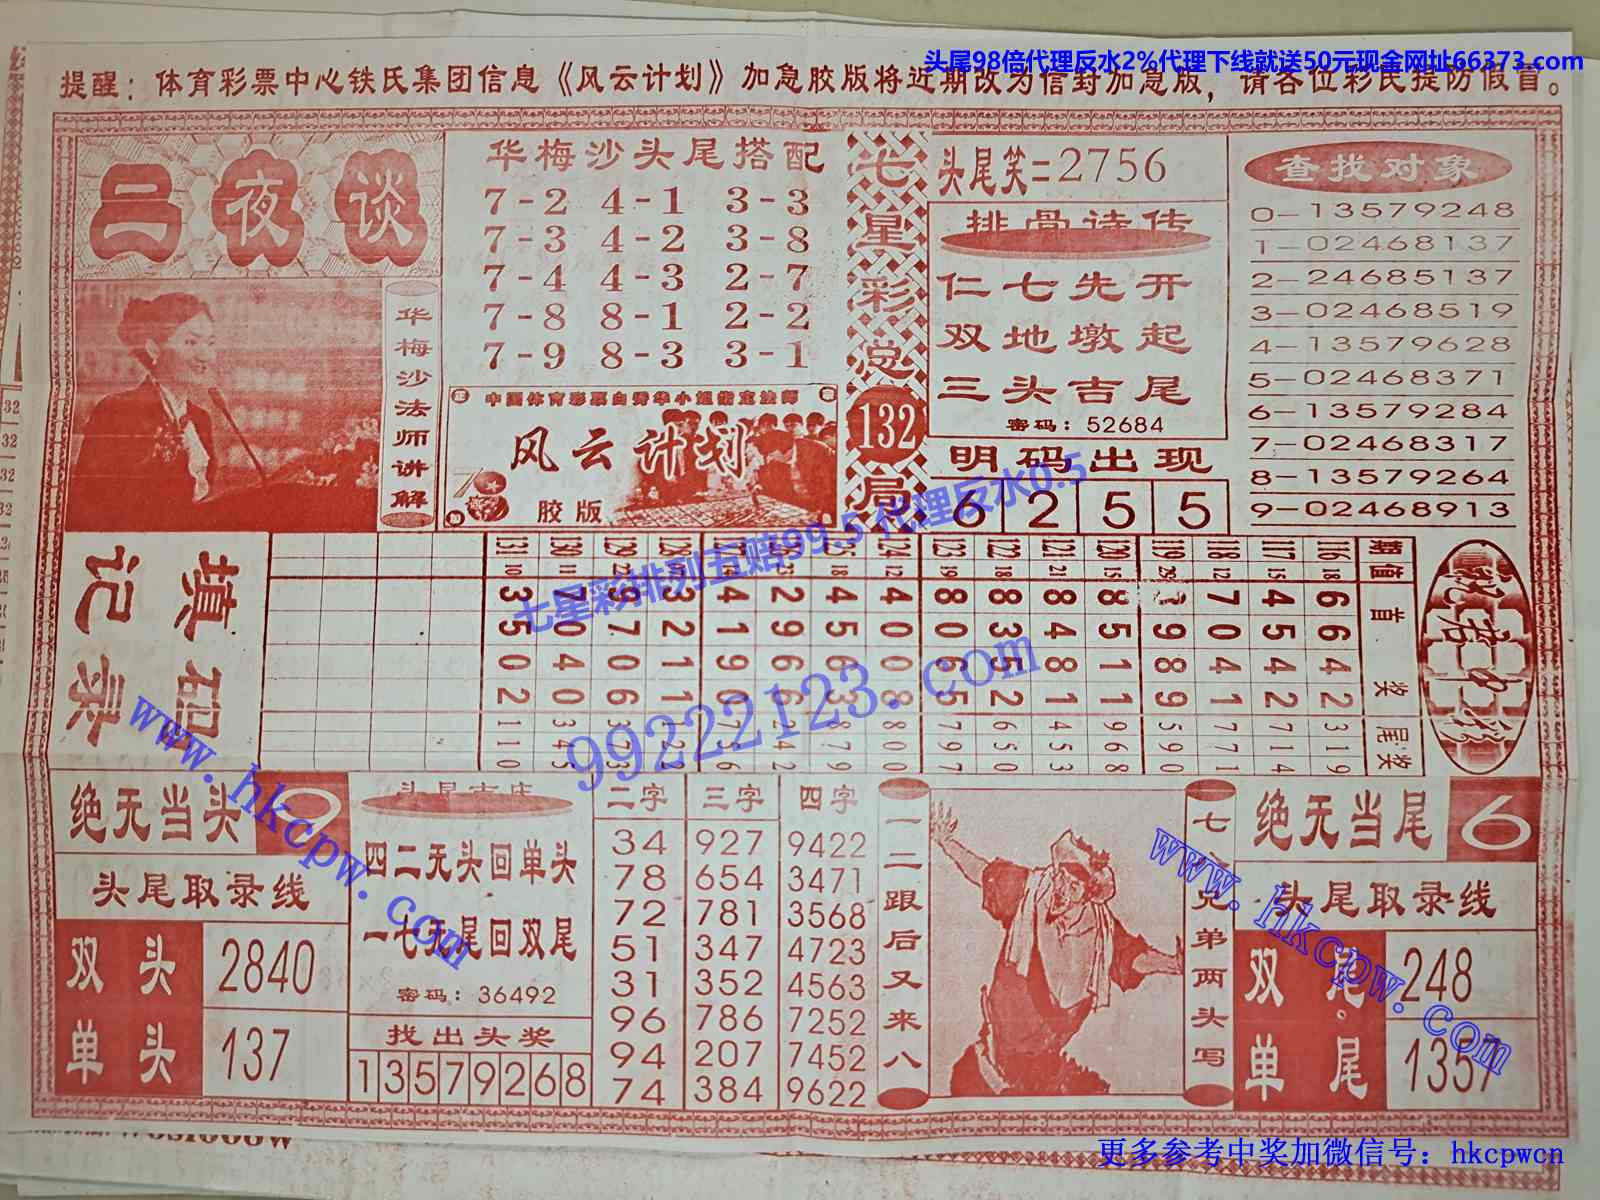 头尾98倍代理反水2%代理下线就送50元现金网址66373.com
提醒：体育彩票中心铁氏集团信息《风云计划》加急胶版将近期改为信封加急版，请各位彩民提防假冒。
二夜谈
华梅沙法师讲解
华梅沙头尾搭配
7-2 4-1 3-3
7-3 4-2 3-8
7-4 4-3 2-7
7-8 8-1 2-2
7-9 8-3 3-1
风云计划
胶版
七星彩总132局
头尾笑=2756
排骨诗传
仁七先开
双地墩起
三头吉尾
密码：52684
明码出现
6 2 5 5
查找对象
0-13579248
1-02468137
2-24685137
3-02468519
4-13579628
5-02468371
6-13579284
7-02468317
8-13579264
9-02468913
七星彩排列五赔99.5代理反水0.5
99222123.com
填码记录
131 130 129 128
123 122 121 120 119 118 117 116 期
10 11
19 18 21 15 29 12 15 18 值
3 7 9 3 4 2 4 4 8 8 8 8 7 4 6 首
5 0 7 2 1 9 5 0 0 3 4 5 9 0 5 6
0 4 0 1 9 6 6 0 6 5 8 1 8 4 4 4
2 0 6 1 0 6 3 8 5 2 1 1 9 1 2 2 奖
尾奖
绝无当头
头尾取录线
双头 2840
单头 137
四二无头回单头
一七无尾回双尾
密码：36492
找出头奖
1 3 5 7 9 2 6 8
二字 三字 四字
34 927 9422
78 654 3471
72 781 3568
51 347 4723
31 352 4563
96 786 7252
94 207 7452
74 384 9622
一二跟后又来八
绝无当尾 6
头尾取录线
双尾 248
单尾 1357
www.hkcpw.com
www.hkcpw.com
更多参考中奖加微信号：hkcpwcn